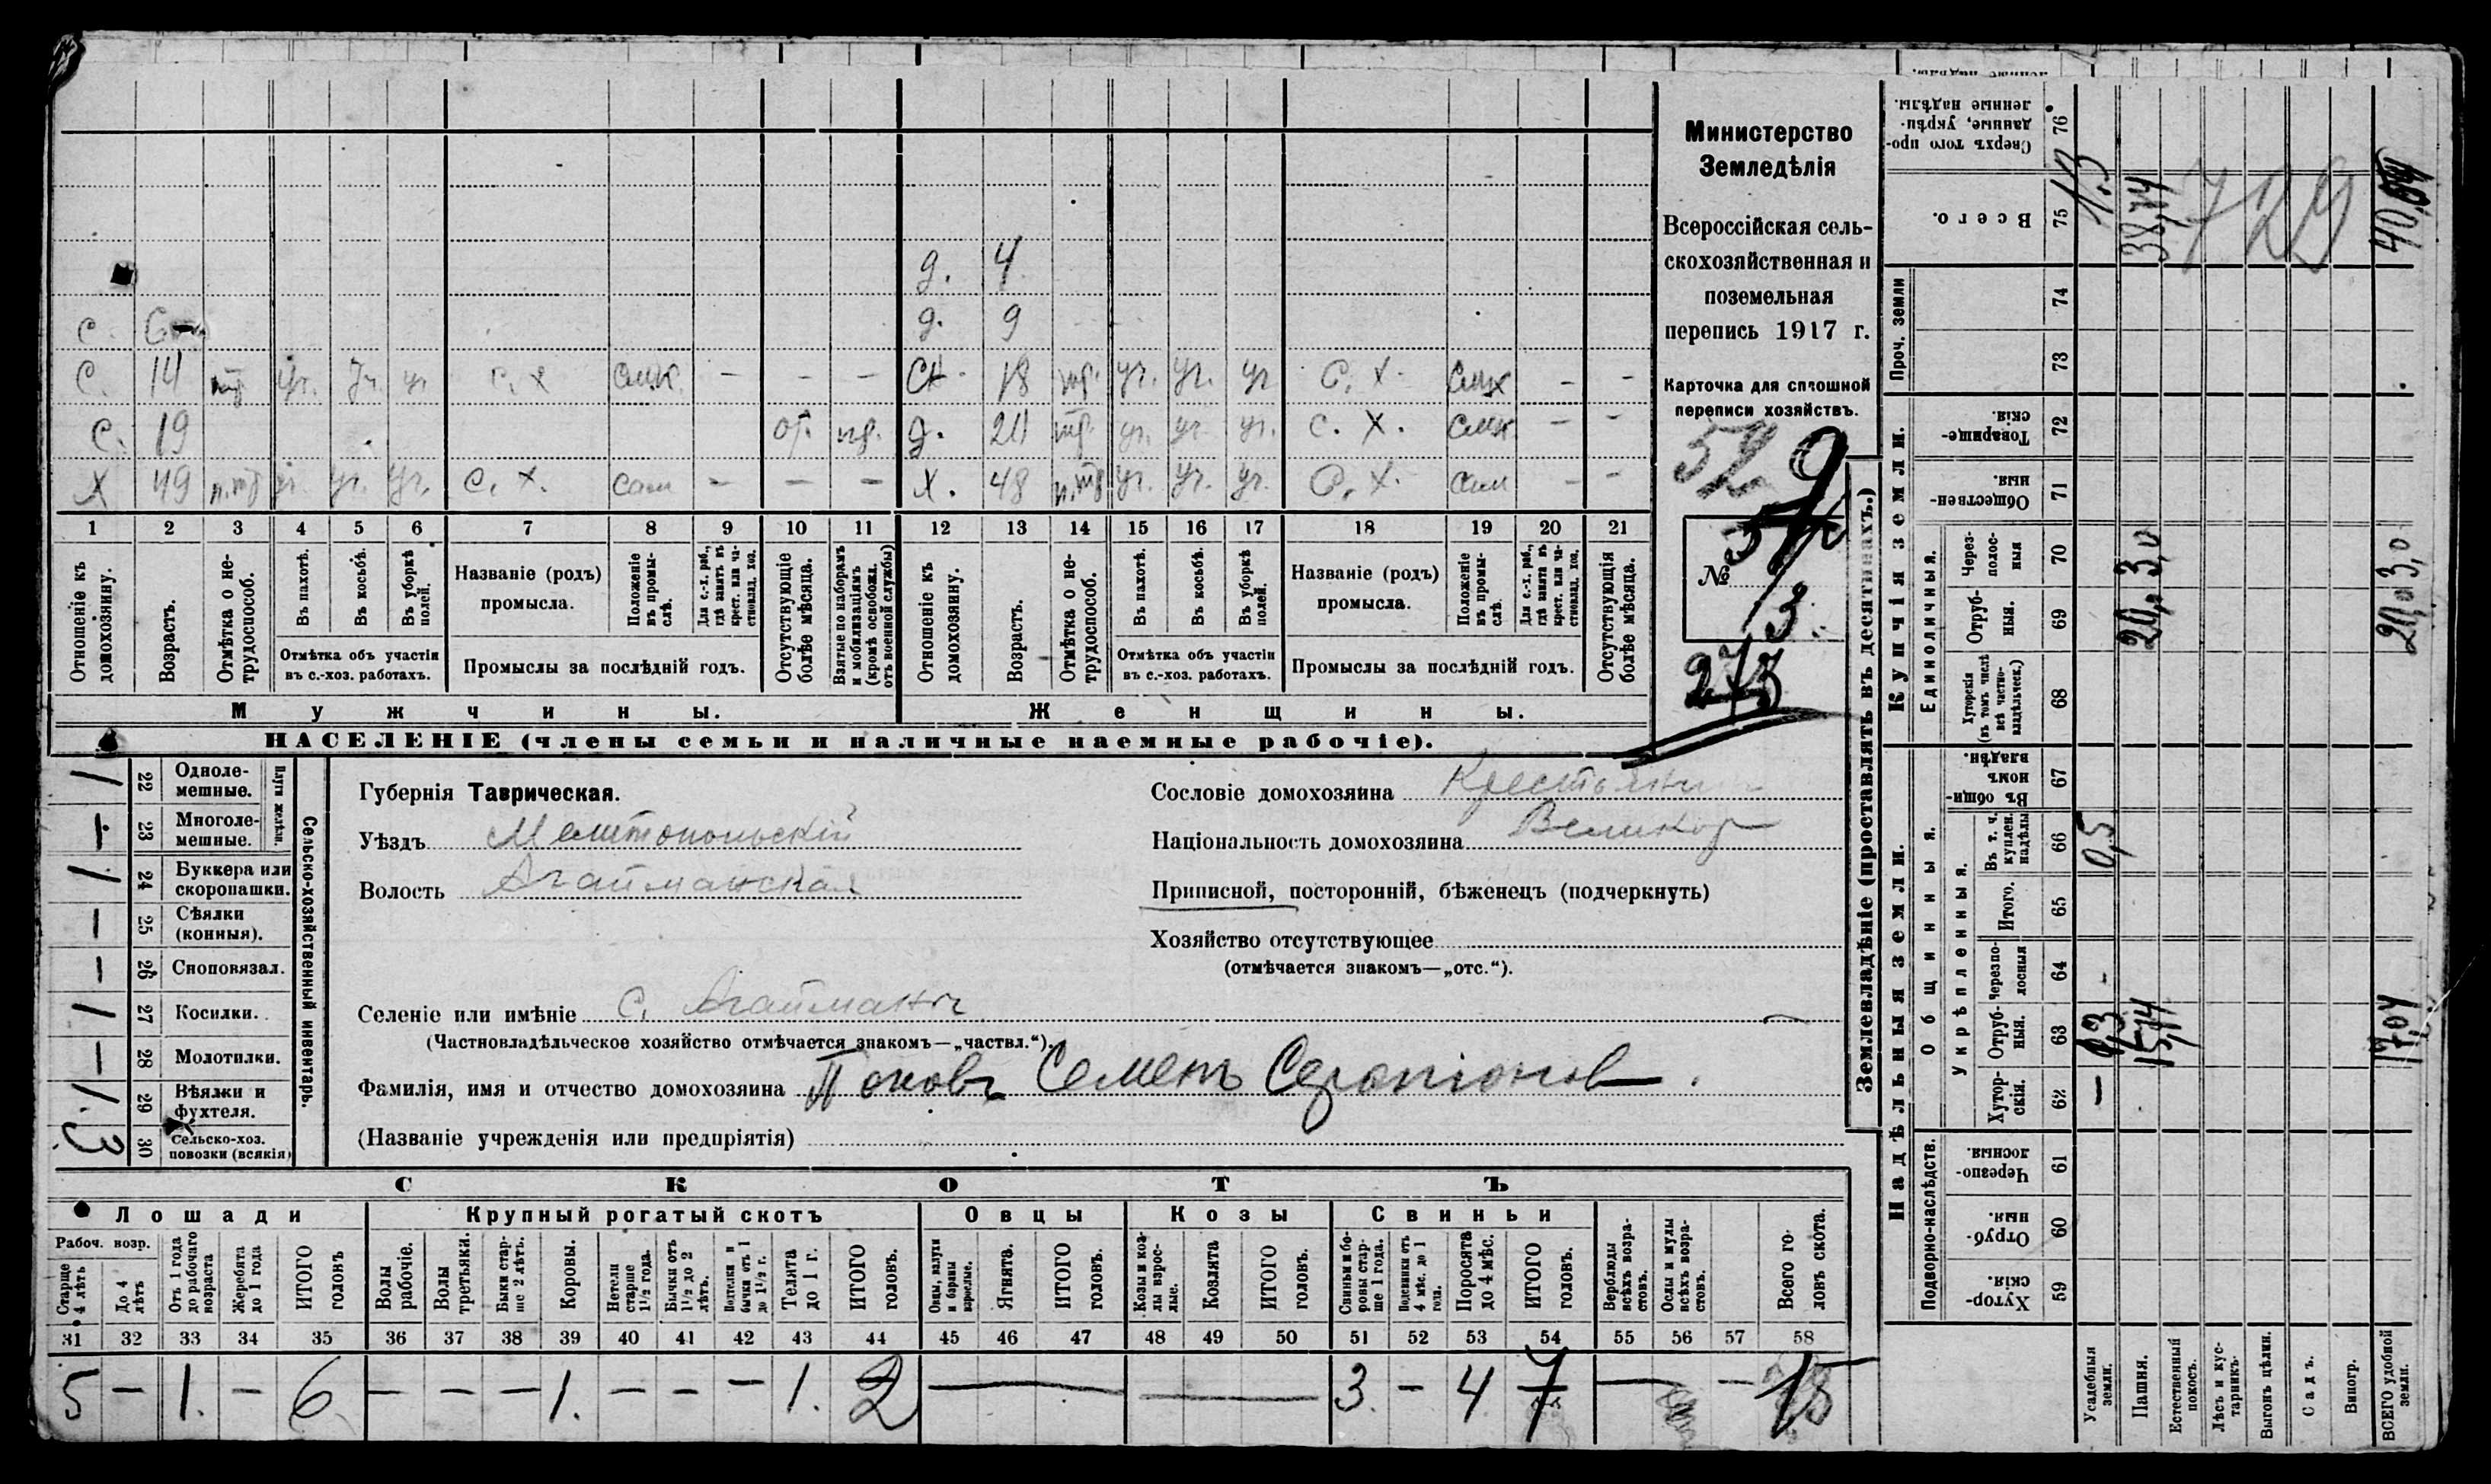 д. 4
с. 6 д. 9
с. 14 тр уч. уч. уч с. х смк. — — — сн. 18 тр. уч. уч. уч с. х. смх — —
с. 19 от. пр. д. 20 тр. уч. уч. уч. с. х. смх — —
х 49 п.тр уч. уч. уч. с. х. сам — — — х. 48 п.тр уч. уч. уч. с. х. сам — —
1 2 3 4 5 6 7 8 9 10 11 12 13 14 15 16 17 18 19 20 21
Отношеніе къ домохозяину.
Возрастъ.
Отмѣтка о не-трудоспособ.
Въ пахотѣ.
Въ косьбѣ.
Въ уборкѣ полей.
Отмѣтка объ участіи
въ с.-хоз. работахъ.
Названіе (родъ)
промысла.
Положеніе въ промы-слѣ.
Для с.-х. раб., гдѣ занятъ въ крест. или ча-стновлад. хоз.
Промыслы за послѣдній годъ.
Отсутствующіе болѣе мѣсяца.
Взятые по наборамъ и мобилизаціямъ (кромѣ освобожд. отъ военной службы)
Отношеніе къ домохозяину.
Возрастъ.
Отмѣтка о не-трудоспособ.
Въ пахотѣ.
Въ косьбѣ.
Въ уборкѣ полей.
Отмѣтка объ участіи
въ с.-хоз. работахъ.
Названіе (родъ)
промысла.
Положеніе въ промы-слѣ.
Для с.-х. раб., гдѣ занята въ крест. или ча-стновлад. хоз.
Промыслы за послѣдній годъ.
Отсутствующія болѣе мѣсяца.
Мужчины. Женщины.
НАСЕЛЕНІЕ (члены семьи и наличные наемные рабочіе).
Министерство
Земледѣлія
Всероссійская сель-
скохозяйственная и
поземельная
перепись 1917 г.
Карточка для сплошной
переписи хозяйствъ.
52
№
3.
273
Сельско-хозяйственный инвентарь.
Плуги желѣзн.
1 22 Одноле-мешные.
— 23 Многоле-мешные.
1. 24 Буккера или скоропашки.
— 25 Сѣялки (конныя).
— 26 Сноповязал.
1 27 Косилки.
— 28 Молотилки.
1. 29 Вѣялки и фухтеля.
3 30 Сельско-хоз. повозки (всякія)
Губернія Таврическая.
Уѣздъ Мелитопольскій
Волость Агайманская
Селеніе или имѣніе с. Агайманъ
(Частновладѣльческое хозяйство отмѣчается знакомъ—„частвл.“).
Фамилія, имя и отчество домохозяина Поповъ Семенъ Серапіонов.
(Названіе учрежденія или предпріятія)
Сословіе домохозяина Крестьянин
Національность домохозяина Великор
Приписной, посторонній, бѣженецъ (подчеркнуть)
Хозяйство отсутствующее
(отмѣчается знакомъ—„отс.“).
СКОТЪ
Лошади Крупный рогатый скотъ Овцы Козы Свиньи
Рабоч. возр.
Старше 4 лѣтъ
До 4 лѣтъ
Отъ 1 года до рабочаго возраста
Жеребята до 1 года
ИТОГО головъ
Волы рабочіе.
Волы третьяки.
Быки стар-ше 2 лѣтъ.
Коровы.
Нетели старше 1½ года.
Бычки отъ 1½ до 2 лѣтъ.
Подтелки и бычки отъ 1 до 1½ г.
Телята до 1 г.
ИТОГО головъ.
Овцы, валухи и бараны взрослые.
Ягнята.
ИТОГО головъ.
Козы и коз-лы взрос-лые.
Козлята
ИТОГО головъ.
Свиньи и бо-ровы стар-ше 1 года.
Подсвинки отъ 4 мѣс. до 1 года.
Поросята до 4 мѣс.
ИТОГО головъ.
Верблюды всѣхъ возра-стовъ.
Ослы и мулы всѣхъ возра-стовъ.
Всего го-ловъ скота.
31 32 33 34 35 36 37 38 39 40 41 42 43 44 45 46 47 48 49 50 51 52 53 54 55 56 57 58
5 — 1. — 6 — — — 1. — — — 1. 2 — — 3. — 4 7 — — 15
Землевладѣніе (проставлять въ десятинахъ.)
Купчія земли.
Надѣльныя земли.
Проч. земли
Единоличныя.
Общинныя.
Укрѣпленныя.
Подворно-наслѣдств.
Сверхъ того про-данные, укрѣп-ленные надѣлы. 76
Всего. 75 1.3 38,74 40,04
729
74
73
Товарище-скія. 72
Обществен-ныя. 71
Через-полос-ныя 70
Отруб-ныя. 69 20,0 3,0 20,0 3,0
Хуторскія (въ томъ числѣ всѣ частно-владѣльческ.) 68
Въ общин-номъ владѣн. 67
Въ т. ч. куплен. надѣлы 66 0,5
Итого. 65
Черезпо-лосныя 64 -
Отруб-ныя. 63 1,3 15,74 17,04
Хутор-скія. 62 —
Черезпо-лосныя. 61
Отруб-ныя. 60
Хутор-скія. 59
Усадебныя земли.
Пашня.
Естественный покосъ.
Лѣсъ и кус-тарникъ.
Выгонъ цѣлин.
Садъ.
Виногр.
ВСЕГО удобной земли.